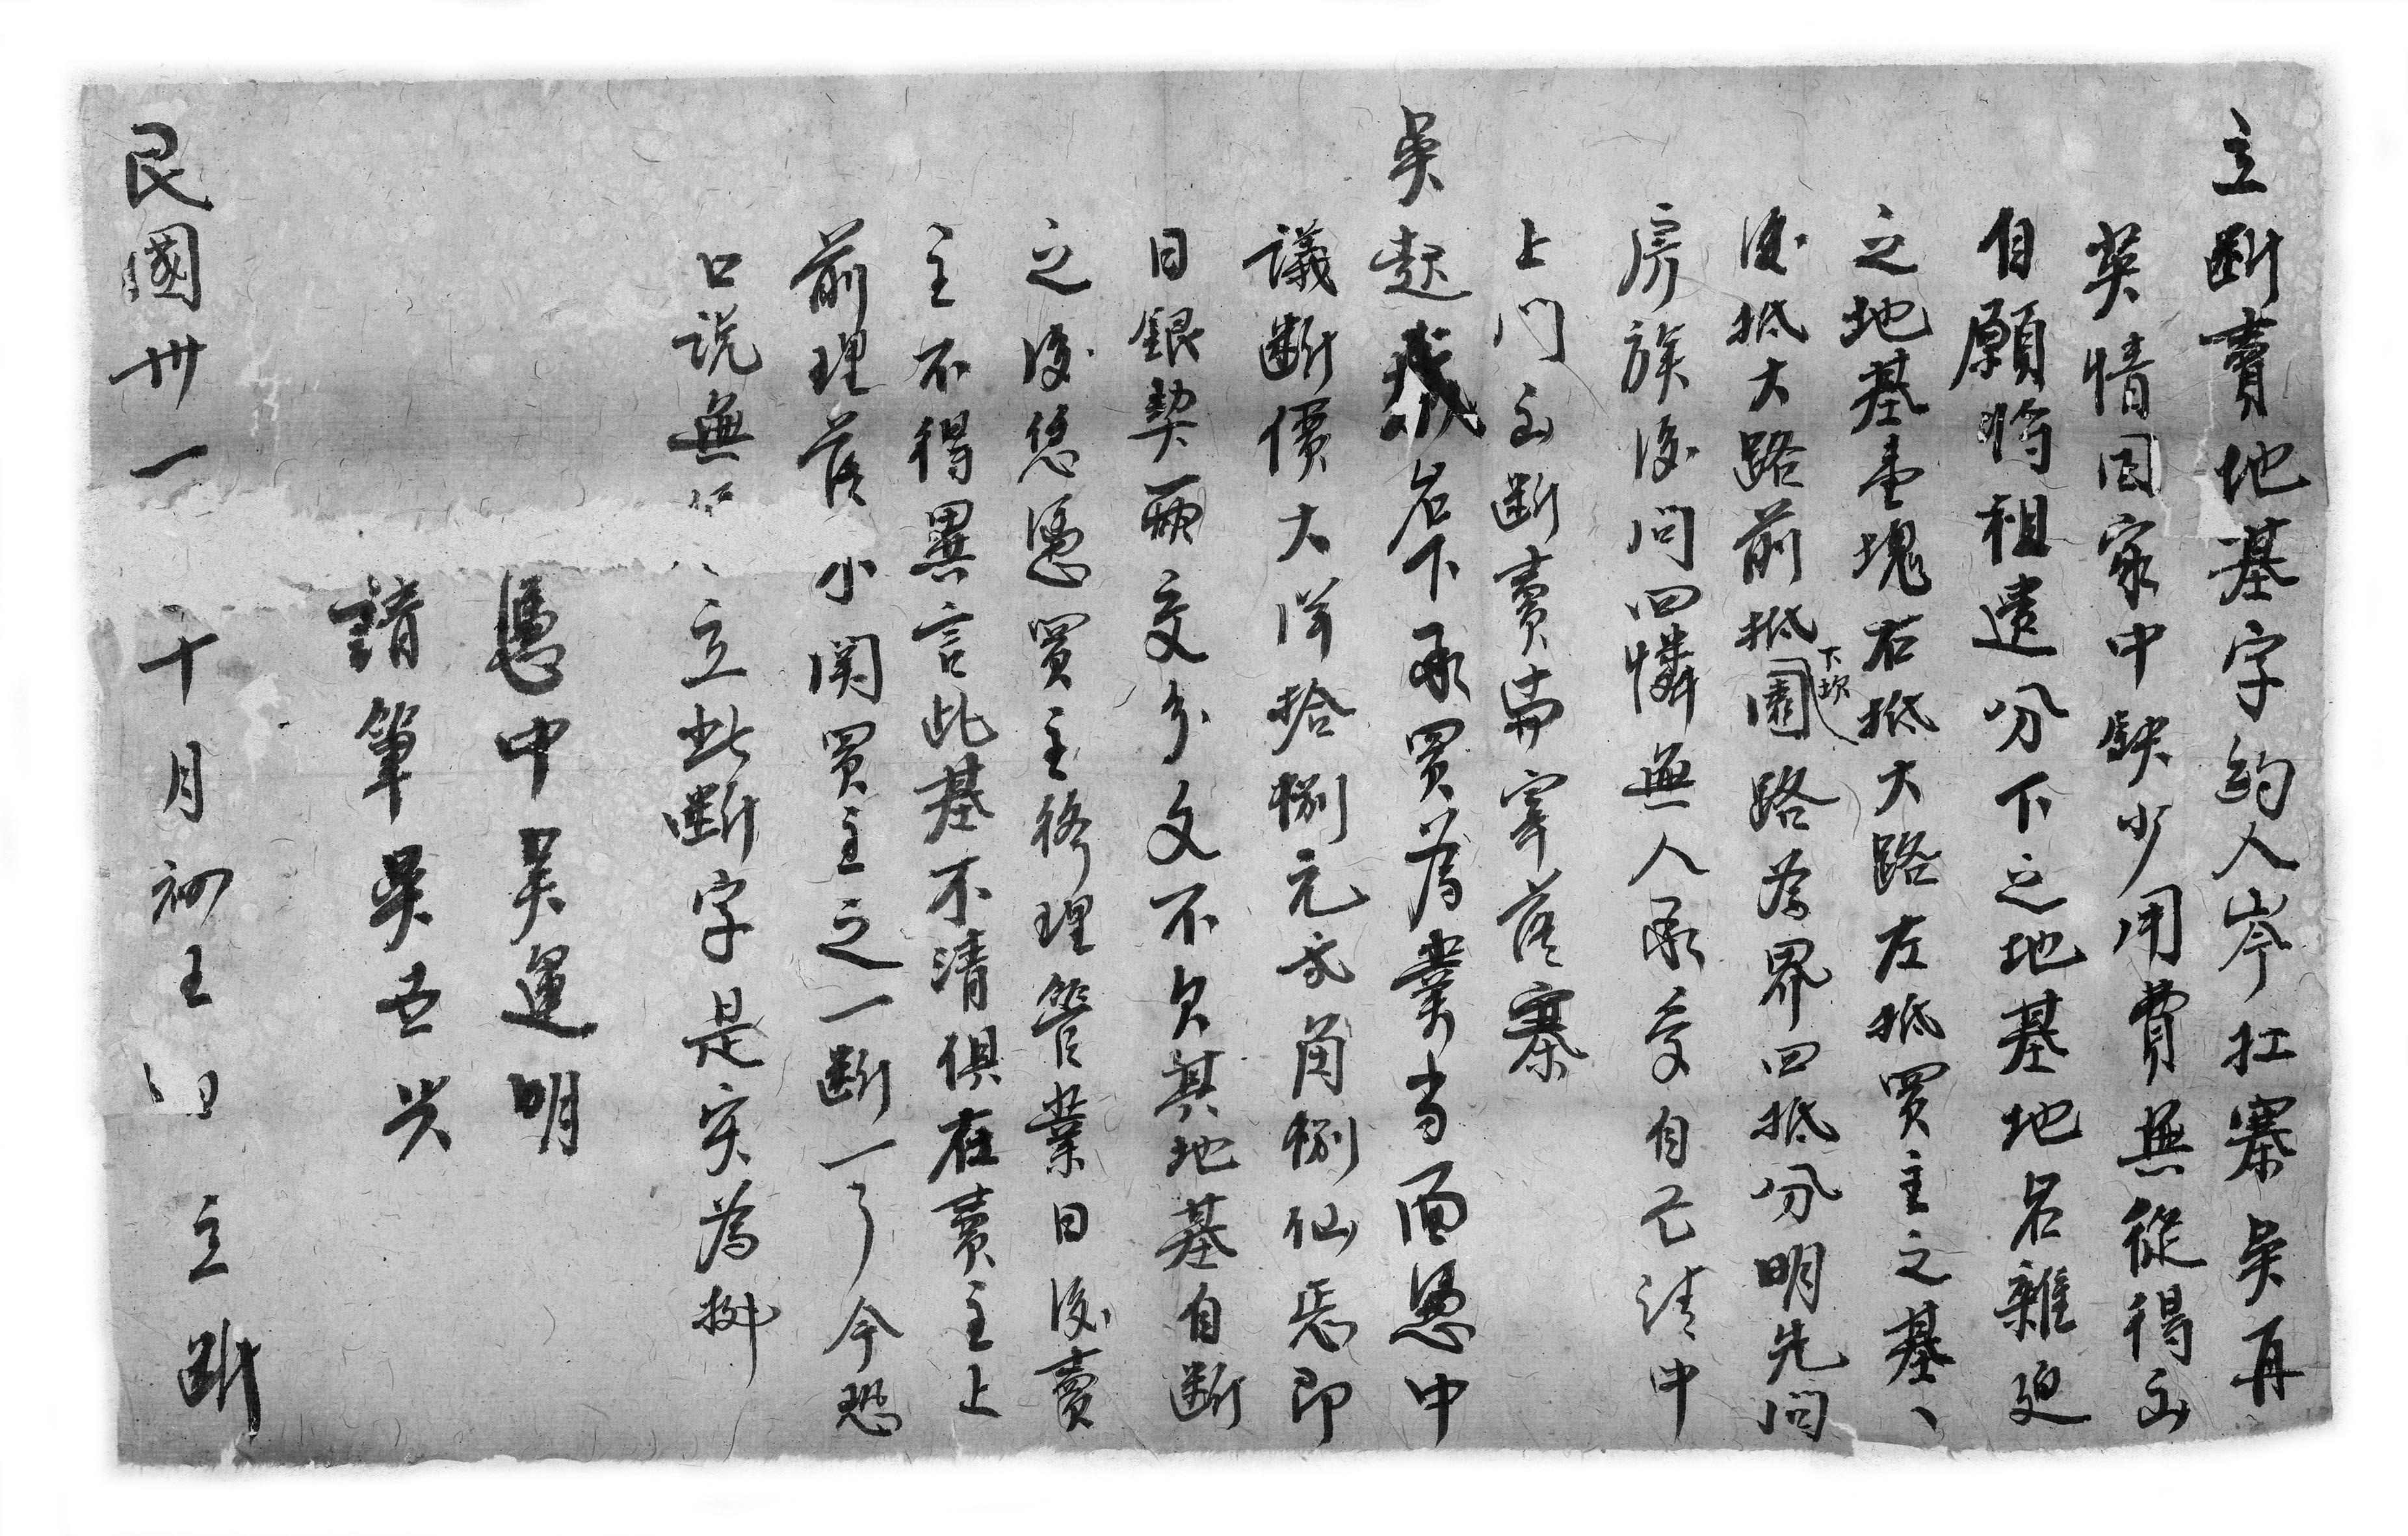 立斷賣地基字約人岑扛寨吳再
英情因家中缺少用費無從得出
自願將祖遺分下之地基地名雜迎
之地基壹塊右抵大路左抵買主之基、
後抵大路前抵園下坎路為界四抵分明先問
房族後問四憐無人承受自己請中
上門出斷賣與宰落寨
吳起名下承買為業當面憑中
議斷價大洋拾捌元弍角捌仙悉即
日銀契両交分文不欠其地基自斷
之後恁憑買主修理管業日後賣
主不得異言此基不清俱在賣主上
前理落小関買主之一斷一了今恐
口説無立此斷字是实為挶
憑中吳運明
請筆吳吾兴
民國卅一十月初立斷